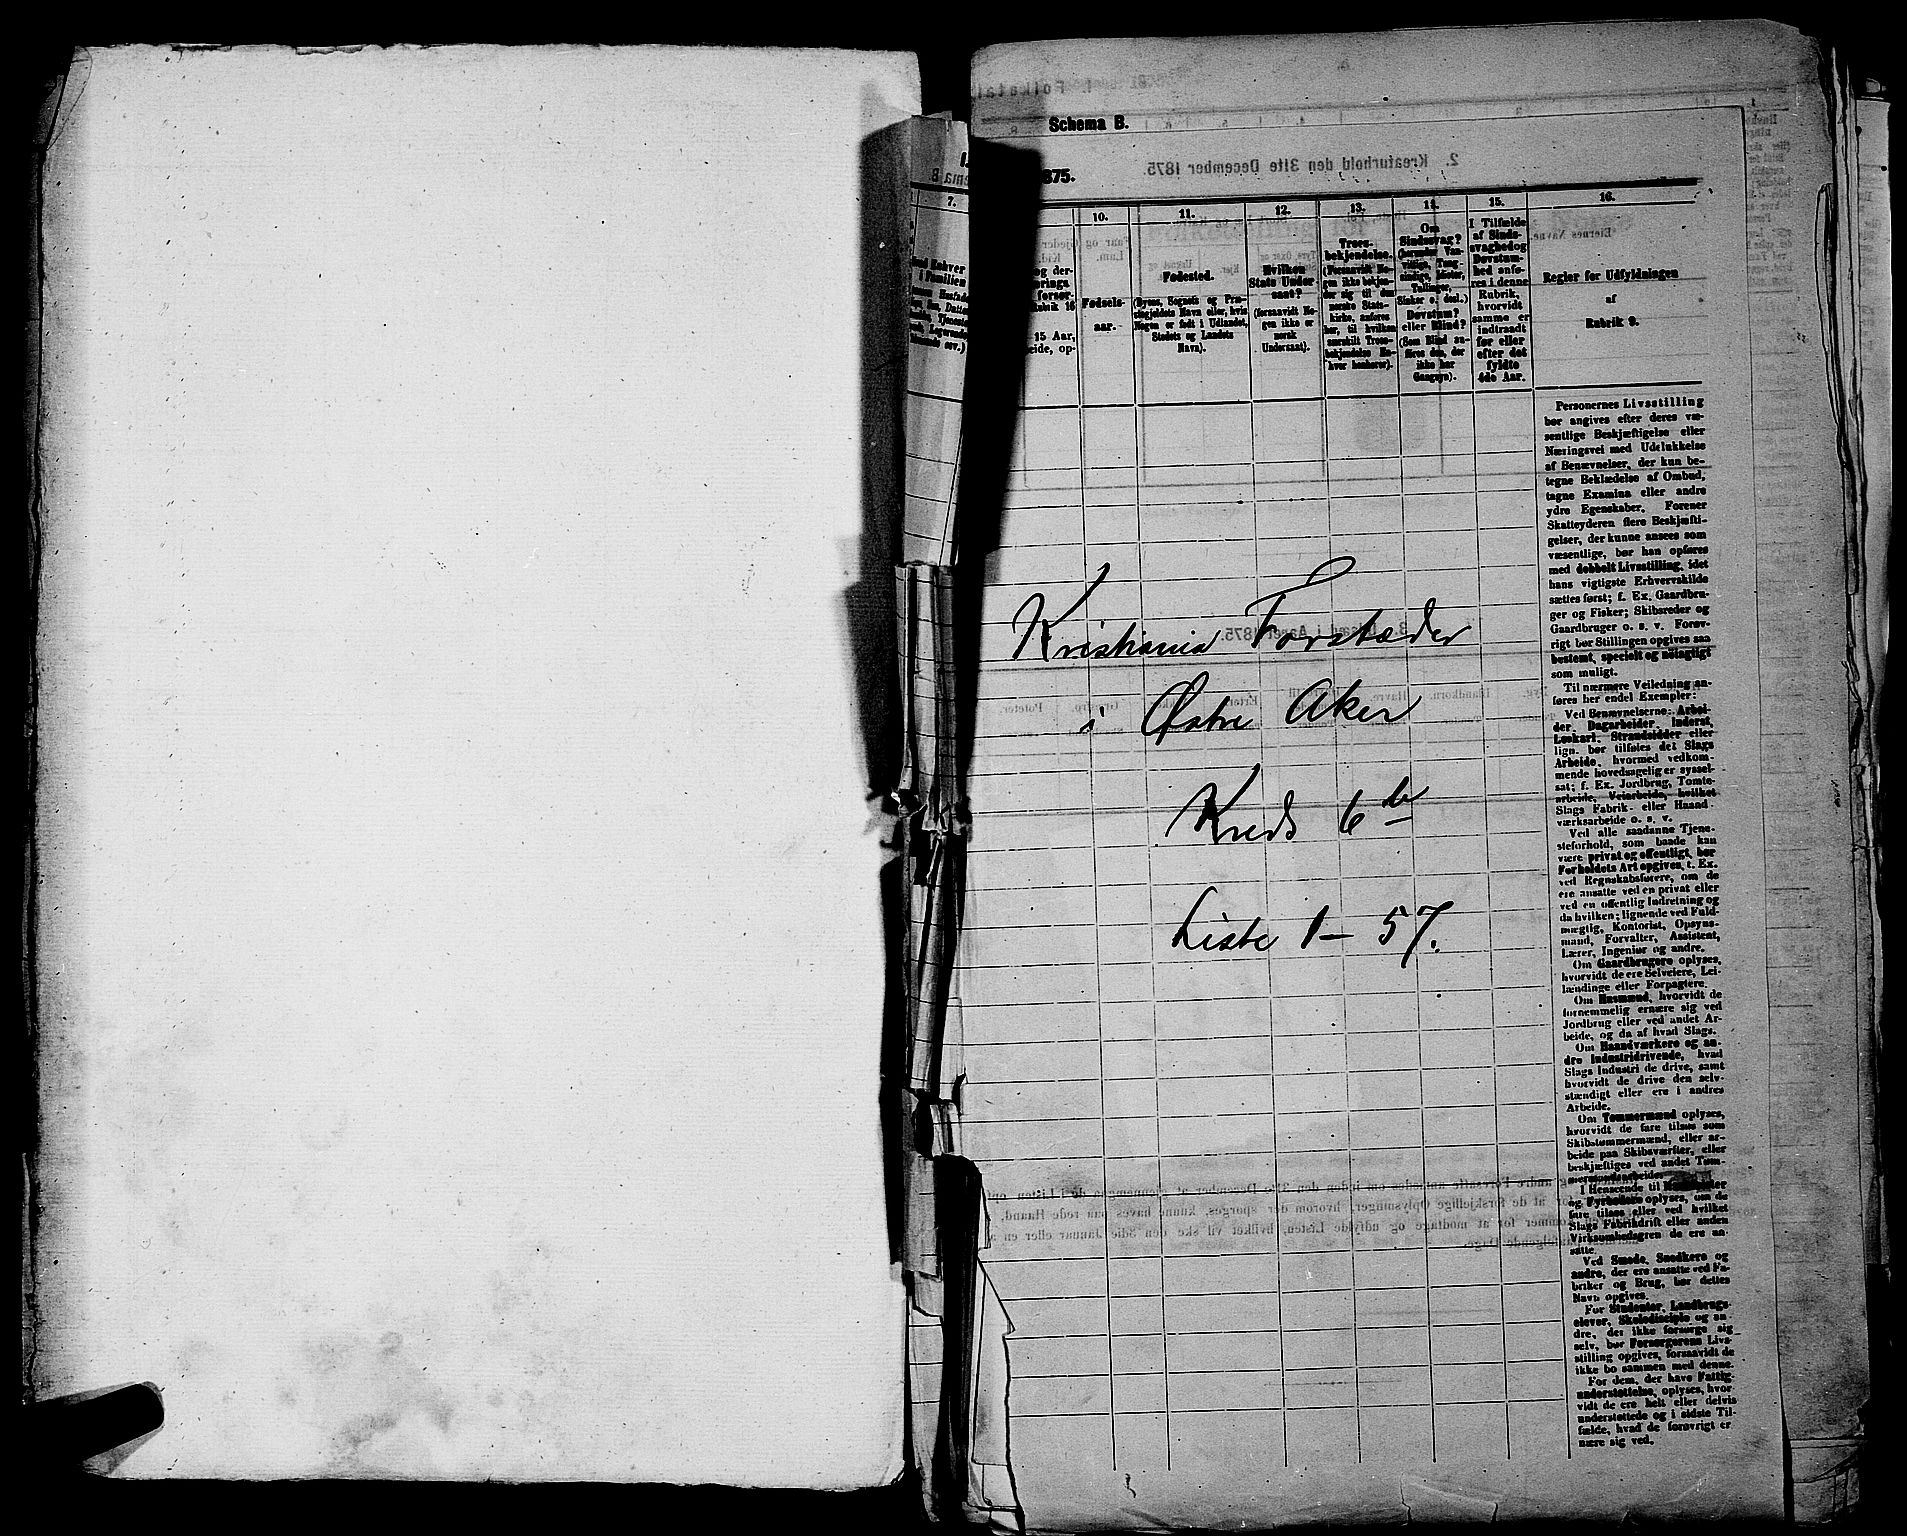 Schema B.
875.
7.
10.
11.
12.
13.
14.
15.
16.
Fødsels-
aar.
Fødested.
(Byens, Sognets og Præ-
stegjeldets Navn eller, hvis
Nogen er født i Udlandet,
Stedets og Landets
Navn).
Hvilken
Stats Under
saat?
(forsaavidt No-
gen ikke er
norsk
Undersaat).
Troes-
bekjendelse.
(Forsaavidt No-
gen ikke bekjen-
der sig til den
norske Stats-
kirke, anføres
her, til hvilken
særskilt Troes-
bekjendelse En-
hver henhører).
Om
Sindssvag?
Døvstum?
eller Blind?
(Som Blind an-
føres den, der
ikke har
Gangsyn).
I Tilfælde
af Sinds-
svaghed og
Døvstum-
hed anfø-
res i denne
Rubrik,
hvorvidt
samme er
indtraadt
før eller
efter det
fyldte
4de Aar.
Regler for Udfyldningen
af
Rubrik 9.
15 Aar,
Kristiania Forstæder
i Østre Aker
Kreds 6b
Liste 1-57.
Personernes Livsstilling
bør angives efter deres væ-
sentlige Beskjæftigelse eller
Næringsvei med Udelukkelse
af Benævnelser, der kun be-
tegne Beklædelse af Ombud,
tagne Examina eller andre
ydre Egenskaber. Forener
Skatteyderen flere Beskjæfti-
gelser, der kunne ansees som
væsentlige, bør han opføres
med dobbelt Livsstilling, idet
hans vigtigste Erhvervskilde
sættes først; f. Ex. Gaardbru-
ger og Fisker; Skibsreder og
Gaardbruger o. s. v. Forøv-
rigt bør Stillingen opgives saa
bestemt, specielt og nöiagtigt
som muligt.
Til nærmere Veiledning an-
føres her endel Exempler:
Ved Benævnelserne: Arbei-
der, Dagarbeider, Inderst,
Løskarl, Strandsidder eller
lign. bør tilføies det Slags
Arbeide, hvormed vedkom-
mende hovedsagelig er syssel-
sat; f. Ex. Jordbrug, Tomte-
arbeide, Veiarbeide, hvilket
Slags Fabrik- eller Haand
værksarbeide o. s. v.
Ved alle saadanne Tjene-
steforhold, som baade kan
være privat og offentligt, bør
Forholdets Art opgives, f. Ex.
ved Regnskabsførere, om de
ere ansatte ved en privat eller
ved en offentlig Indretning og
da hvilken; lignende ved Fuld-
mægtig, Kontorist, Opsyns-
mand, Forvalter, Assistent,
Lærer, Ingeniør og andre.
Om Gaardbrugere oplyses,
hvorvidt de ere Selveiere, Lei-
lændinge eller Forpagtere.
Om Husmænd, hvorvidt de
fornemmelig ernære sig ved
Jordbrug eller ved andet Ar-
beide, og da af hvad Slags.
Om Haandværkere og an-
dre Industridrivende, hvad
Slags Industri de drive, samt
hvorvidt de drive den selv-
stændigt eller ere i andres
Arbeide.
Om Tømmermænd oplyses,
hvorvidt de fare tilsøs som
Skibstømmermænd, eller ar-
beide paa Skibsværfter, eller
beskjæftiges ved andet Tøm-
mermandsarbeide.
I Henseende til Maskinister
og Fyrbødere oplyses, om de
fare tilsøs eller ved hvilket
Slags Fabrikdrift eller anden
Virksomhedsgren de ere an-
satte.
Ved Smede, Snedkere og
andre, der ere ansatte ved Fa-
briker og Brug, bør dettes
Navn opgives.
For Studenter, Landbrugs-
elever, Skoledisciple og an-
dre, der ikke forsørge sig
selv, bør Forsørgerens Livs-
stilling opgives, forsaavidt de
ikke bo sammen med denne.
For dem, der have Fattig-
understøttelse, oplyses, hvor-
vidt de ere helt eller delvis
understøttede og i sidste Til-
fælde, hvad de forøvrigt er
nære sig ved.